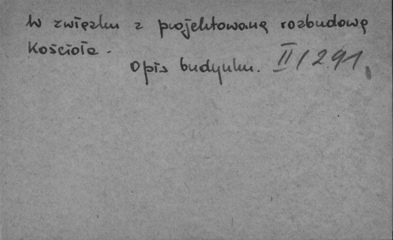 W związku z projektowaną rozbudową
Kościoła.
Opis budynku. II/291.